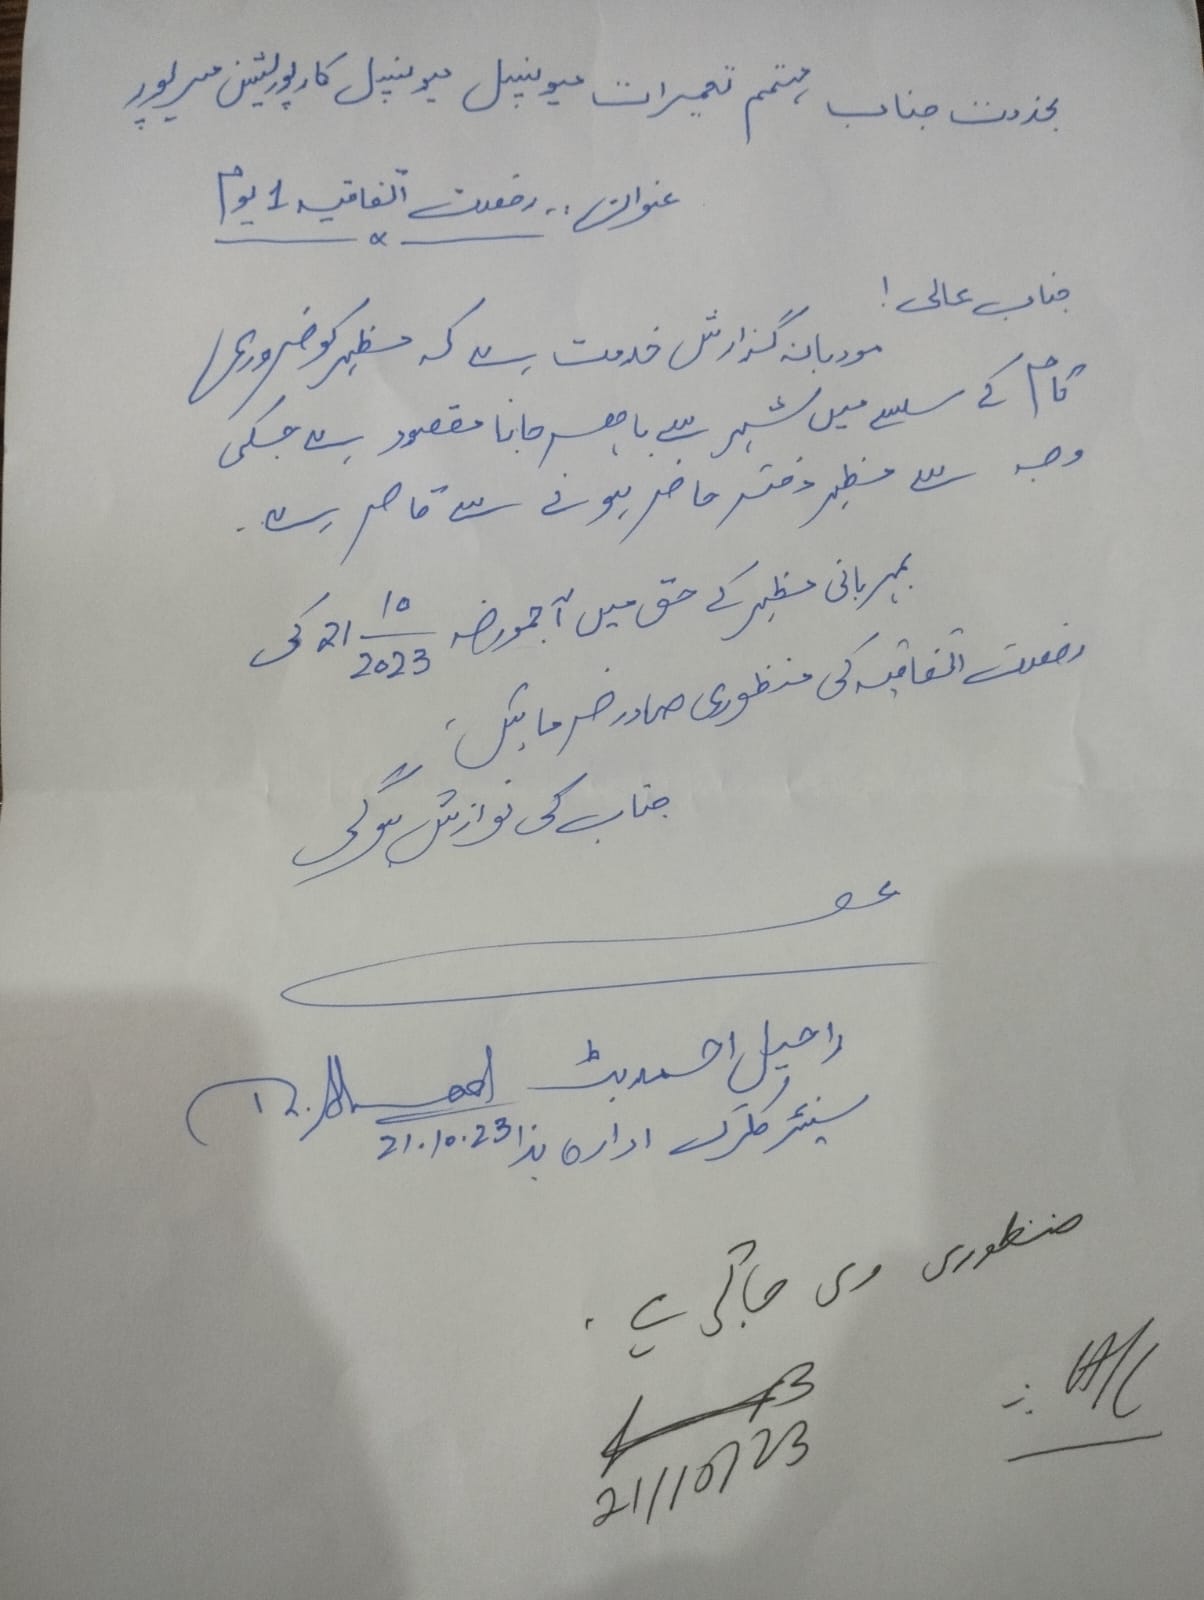 بخدمت جناب مہتمم تعمیرات میونسپل میونسپل کارپوریشن میرپور
عنوان:۔ رخصت اتفاقیہ 1 یوم
جناب عالی!
مودبانہ گذارش خدمت ہے کہ مظہر کو ضروری
کام کے سلسلے میں شہر سے باہر جانا مقصود ہے جسکی
وجہ سے مظہر دفتر حاضر ہونے سے قاصر ہے۔
بمہربانی مظہر کے حق میں آجمورخہ 21 10/2023 کی
رخصت اتفاقیہ کی منظوری صادر فرمائیں۔
جناب کی نوازش ہوگی
راحیل احمد بٹ
سینئر کلرک ادارہ ہذا 21.10.23
منظوری دی جاتی ہے۔
21/10/23